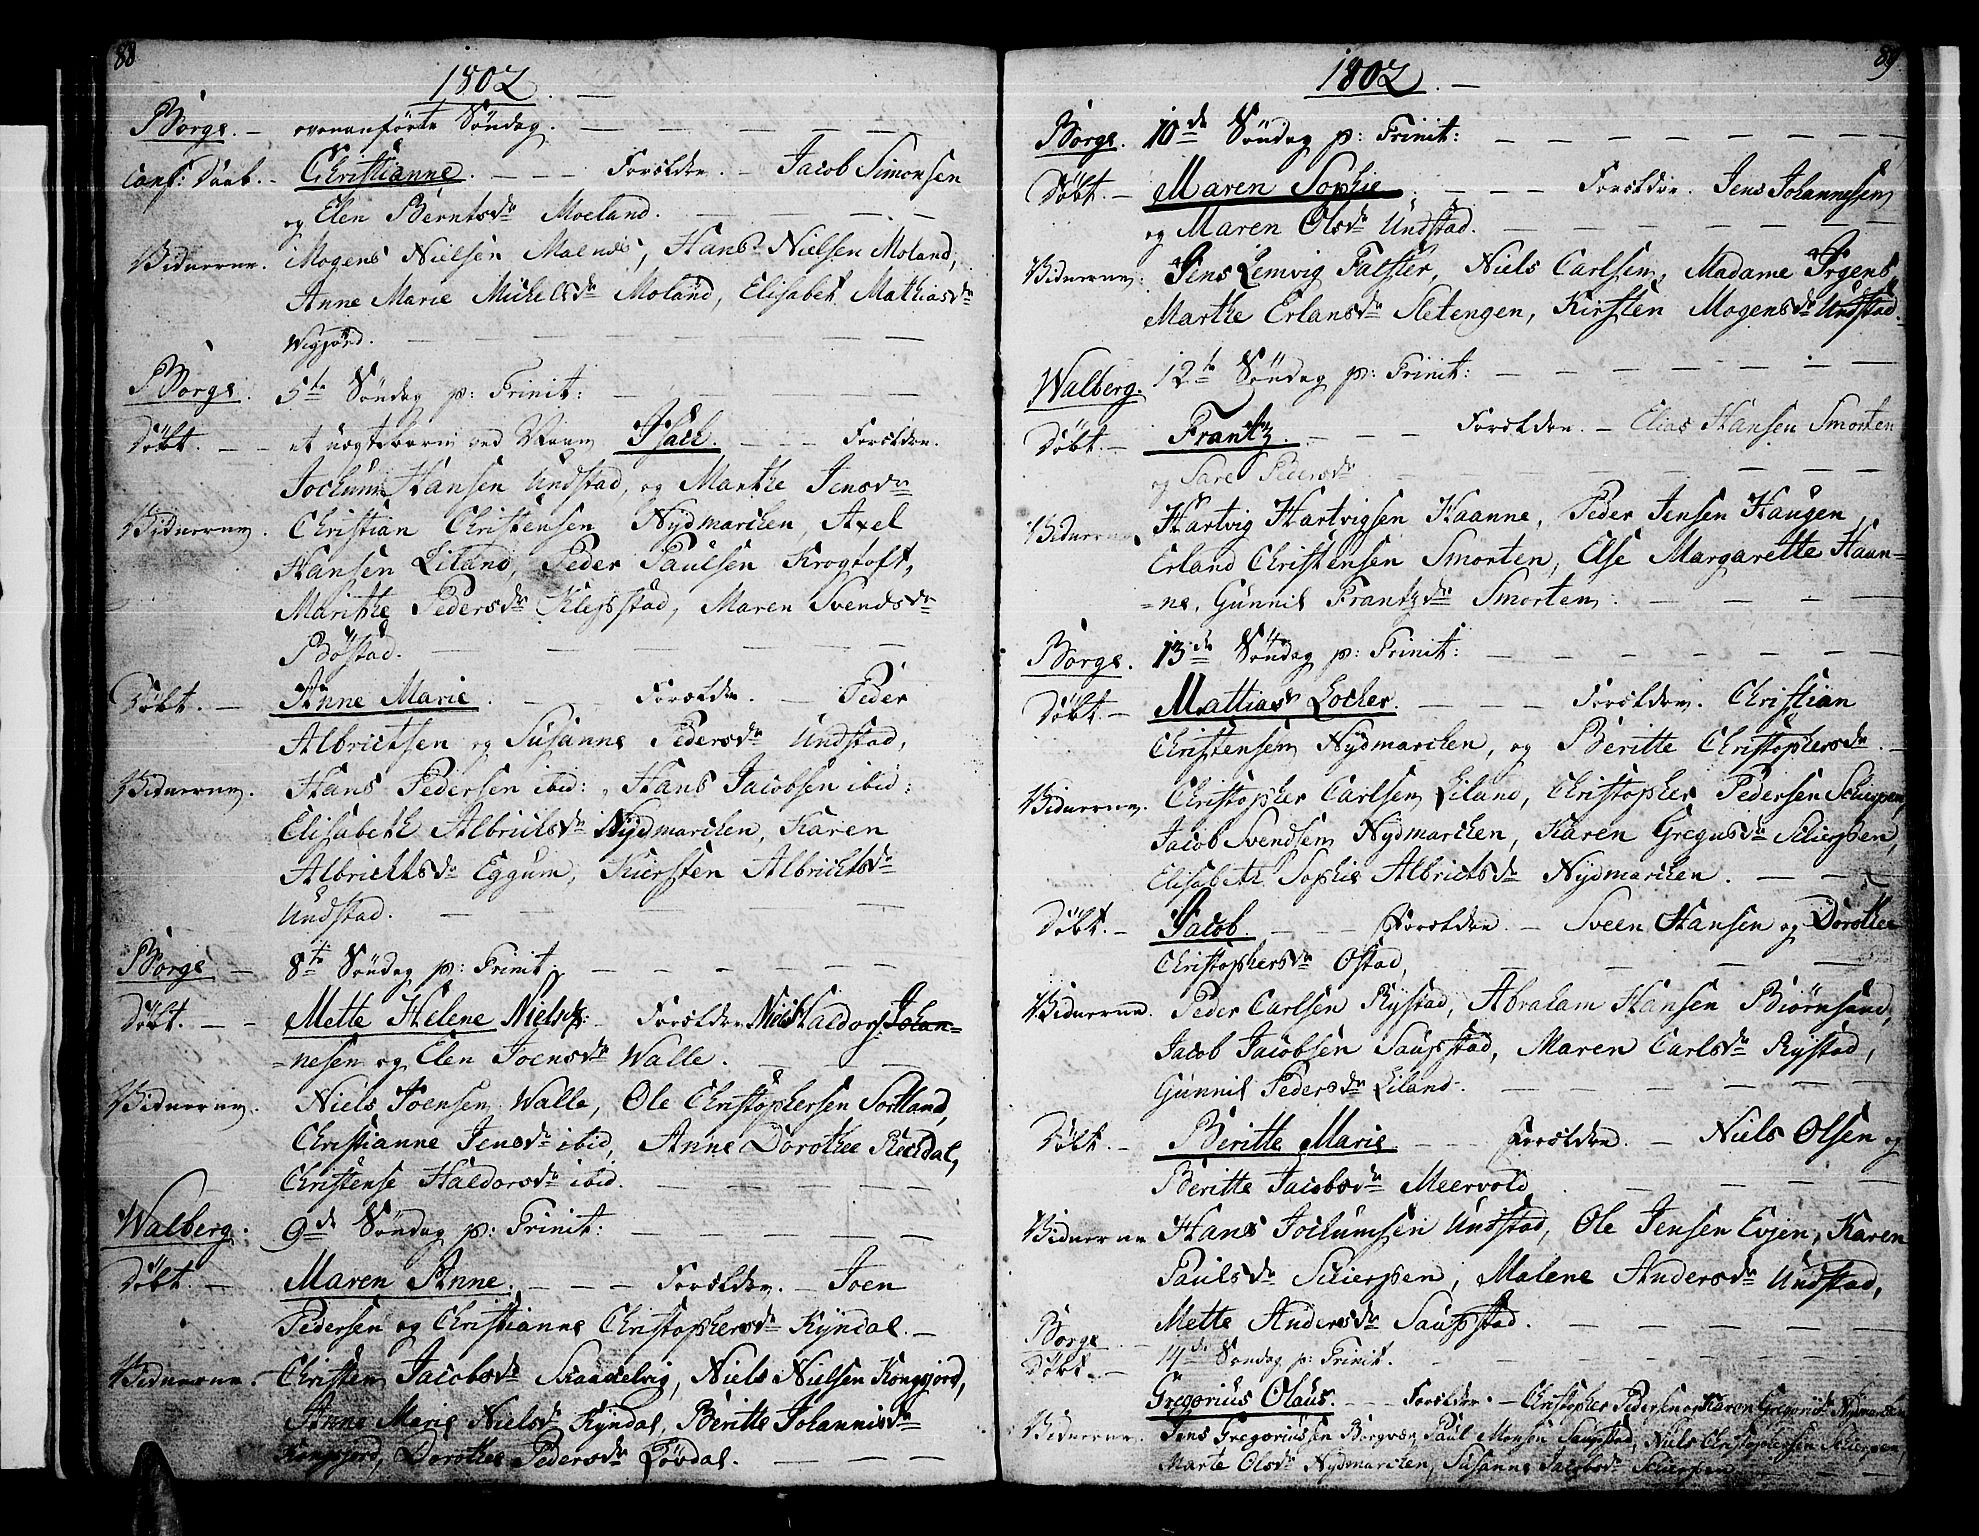 88
1802. —
Borge. — ovenanførte Søndag. —
Conf: Daab. — Christianne. — Forældre. — Jacob Simonsen
og Elen Berntsdr Moeland. —
Vidnerne. Mogens Nielsen Malnæs, Hans Nielsen Moland,
Anne Marie Michelsdr Moland, Elisabet Mathiasdr
Wigfjord. —
Borge. 5te Søndag p: Trinit: —
Døbt. — et uægtebarn ved Navn Isach. — Forældre.
Jochum Hansen Undstad, og Marthe Jensdr
Vidnerne. Christian Christensen Nydmarchen, Axel
Hansen Liland, Peder Paulsen Krogtoft,
Marithe Pedersdr Klepstad, Maren Svendsdr
Bøstad. —
Døbt. — Anne Marie. — Forældre. — Peder
Albrichtsen og Susanne Pedersdr Undstad,
Vidnerne. Hans Pedersen ibid:, Hans Jacobsen ibid:
Elisabeth Albrichsdr Nydmarchen, Karen
Albrichtsdr Eggum, Kiersten Albrichtsdr
Undstad. —
Borge — 8te Søndag p: Trinit. —
Døbt. — Mette Helene Nielsdr: Forældre Niels Haldors: Johan-
=nesen og Elen Joensdr Walle. —
Vidnerne. Niels Joensen Walle, Ole Christophersen Sortland,
Christianne Jensdr ibid, Anne Dorothe Reckdal,
Christense Haldorsdr ibid. —
Walberg. 9de Søndag p: Trinit: —
Døbt. — Maren Anne. — Forældre. — Joen
Pedersen og Christianne Christophersdr Kyndal. —
Vidnerne. Christen Jacobsdr Skaadelvig, Niels Nielsen Kongsjord,
Anne Marie Nielsdr Kyndal, Beritte Johannisdr
Kongsjord, Dorothe Pedersdr Lövdal. —
89
1802. —
Borge. 10de Søndag p: Trinit: —
Døbt. — Maren Sophie. — Forældre. Jens Johannessen
og Maren Olsdr Undstad. —
Vidnerne. Jens Lemvig Falster, Niels Carlsen, Madame Irgens,
Marthe Erlansdr Sletengen, Kirsten Mogensdr Undstad.
Walberg. 12te Søndag p: Trinit: —
Døbt. — Frantz. — Forældre. — Elias Hansen Smorten
og Sare Pedersdr —
Vidnerne. Hartvig Hartvigsen Haanne, Peder Jensen Haugen,
Erland Christensen Smorten, Else Margarette Haan-
=ne, Gunnil Frantzdr Smorten. —
Borge. 13de Søndag p: Trinit: —
Døbt. — Mattias Locher. — Forældre. Christian
Christensen Nydmarchen, og Beritte Christophersdr. —
Vidnerne. Christopher Carlsen Liland, Christopher Pedersen Schierpen,
Jacob Svendsen Nydmarchen, Karen Gregusdr Schierpen,
Elisabeth Sophie Albrictsdr Nydmarchen. —
Døbt. — Jacob. — Forældre. — Sveen Hansen og Dorothe
Christophersdr Ostad, —
Vidnerne. Peder Carlsen Rystad, Abraham Hansen Biørnsand,
Jacob Jacobsen Saupstad, Maren Carlsdr Rystad,
Gunnil Pedersdr Liland. —
Døbt. — Beritte Marie — Forældre. — Niels Olsen og
Beritte Jacobsdr Meervold —
Vidnerne Hans Jochumsen Undstad, Ole Jensen Evjen, Karen
Paulsdr Schierpen, Malene Andersdr Undstad,
Mette Andersdr Saupstad. —
Borge — 14de Søndag p: Trinit. —
Døbt. — Gregorius Olaus. — Forældre. — Christopher Pedersen og Karen Gregoriidr Nydmarchen
Vidnerne. Jens Gregoriussen Borgvær, Paul Monsen Saupstad, Niels Christophersen Schierpen,
Marte Olsdr Nydmarchen, Susanne Jacobsdr Schierpen —